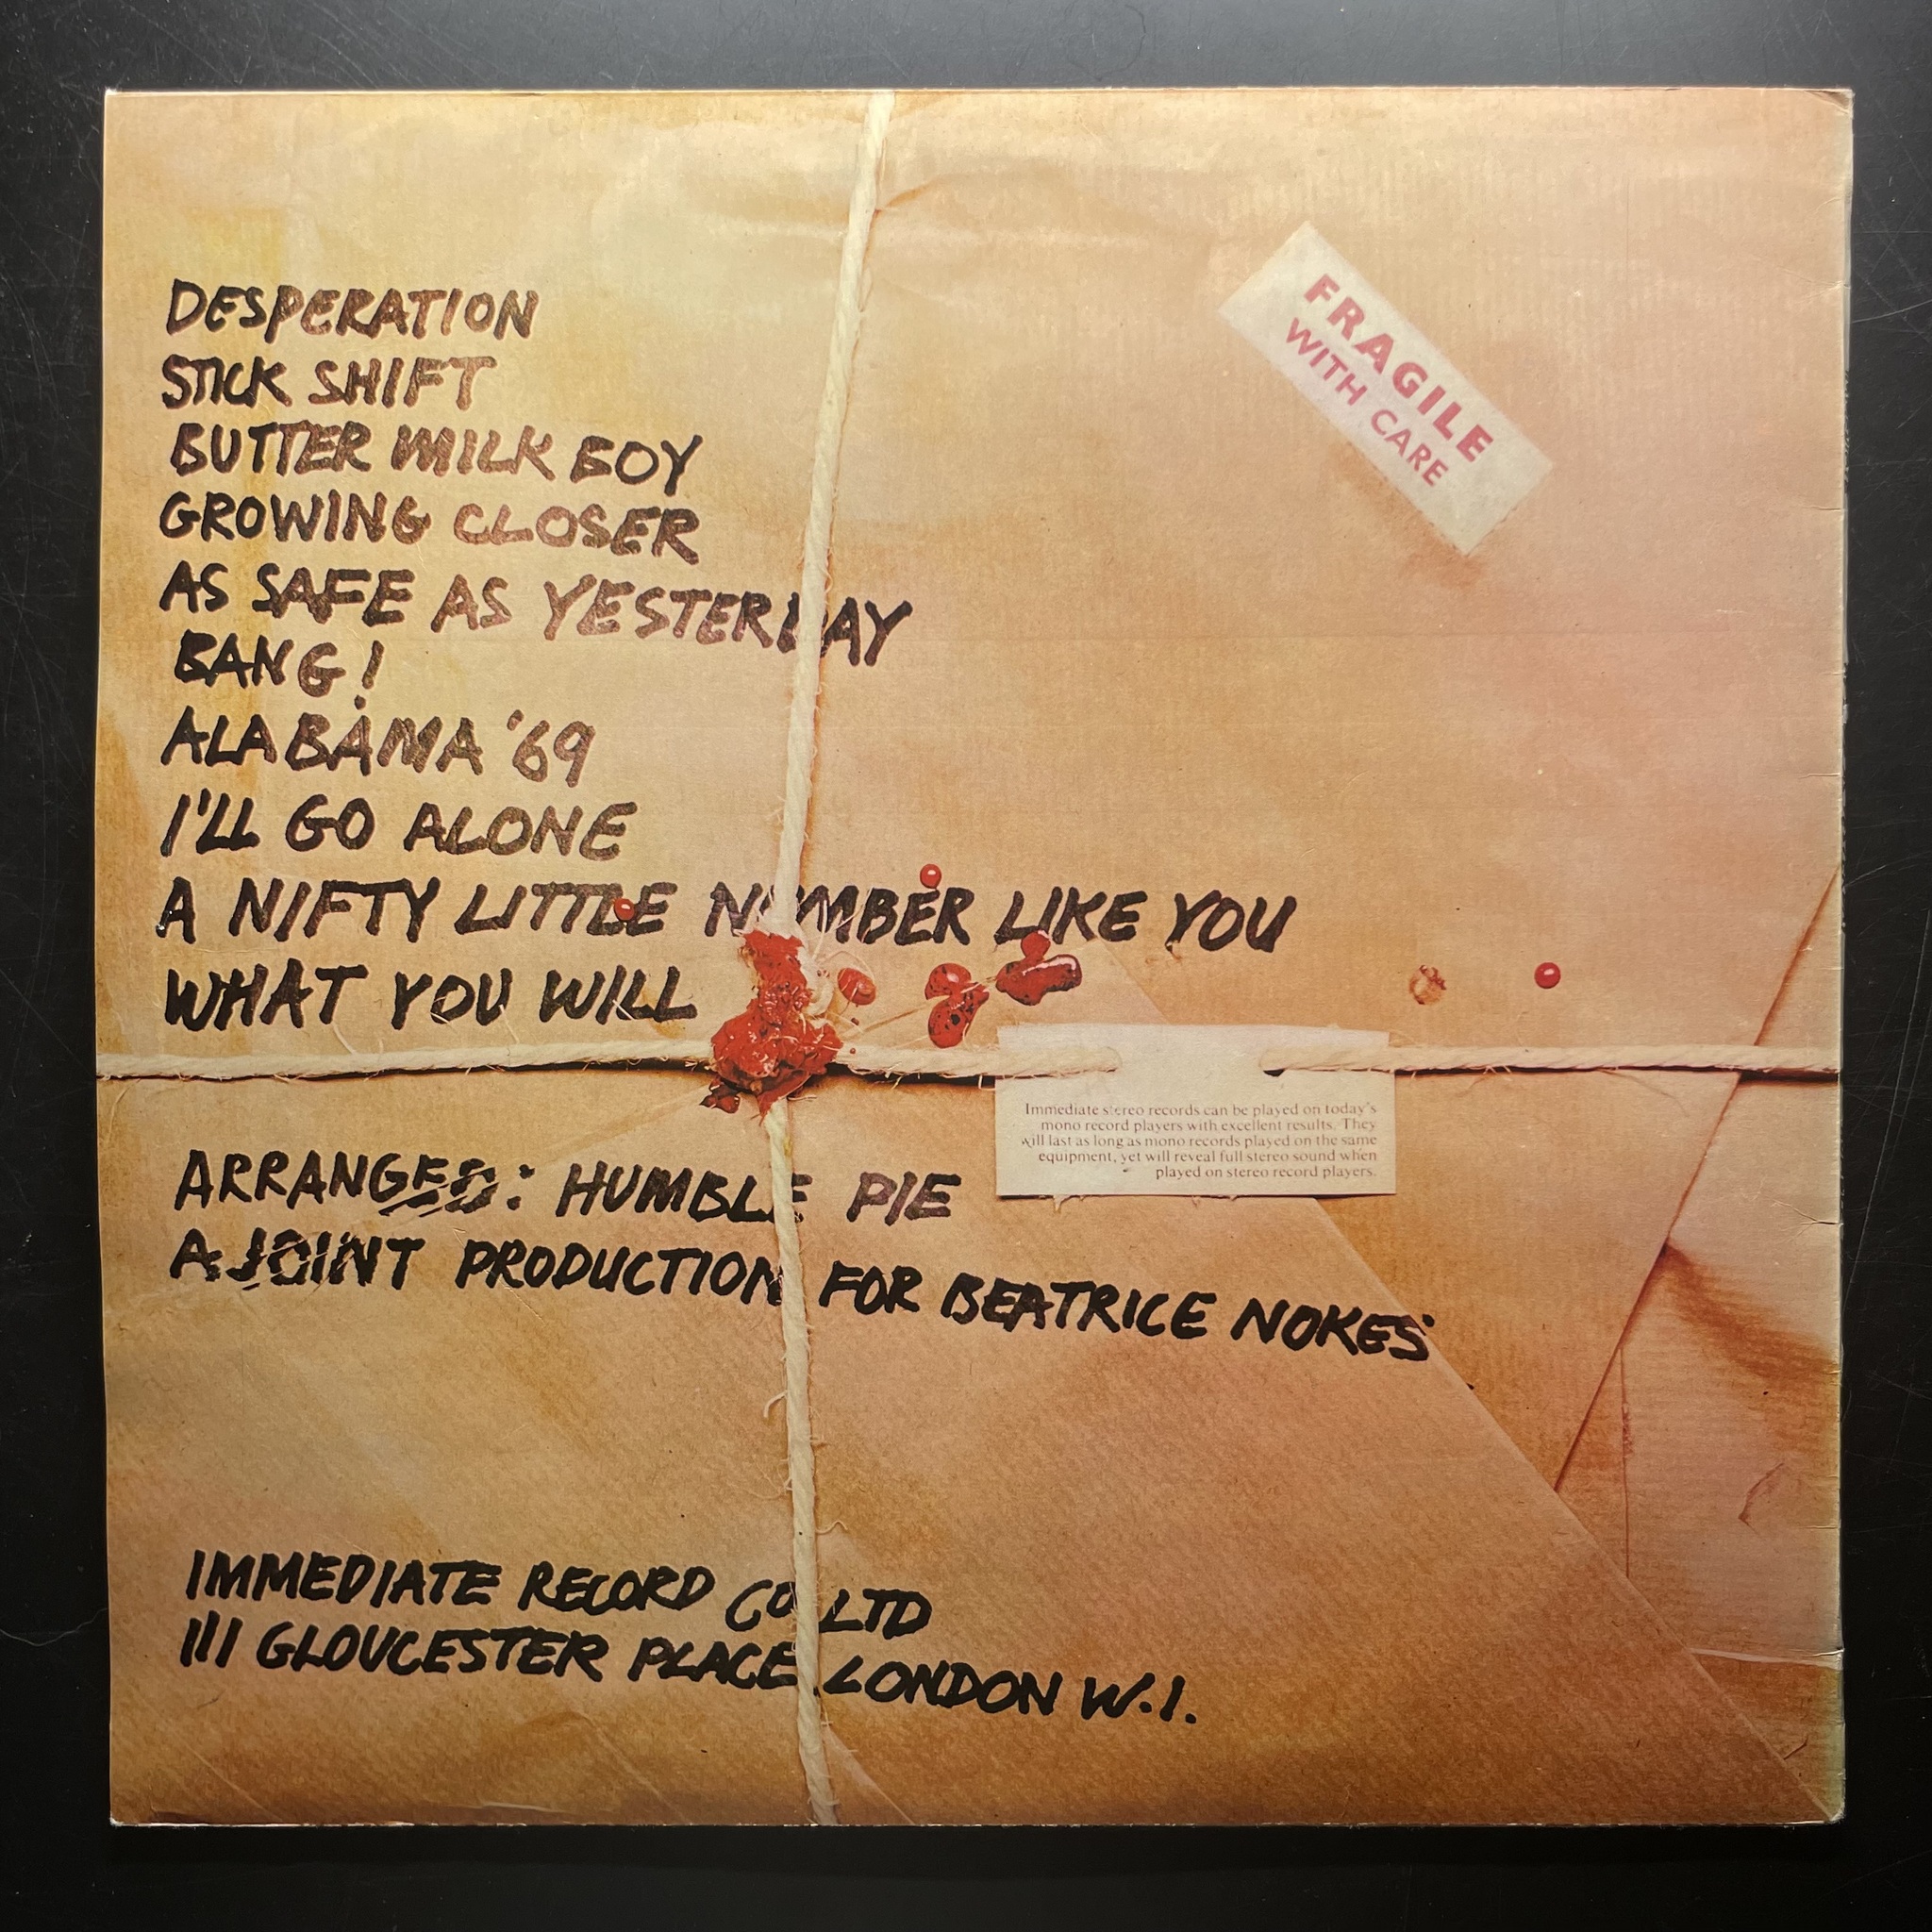 DESPERATION
STICK SHIFT
BUTTER MILK BOY
GROWING CLOSER
AS SAFE AS YESTERDAY
BANG!
ALABAMA '69
I'LL GO ALONE
A NIFTY LITTLE NUMBER LIKE YOU
WHAT YOU WILL
FRAGILE
WITH CARE
Immediate stereo records can be played on today's
mono record players with excellent results. They
will last as long as mono records played on the same
equipment, yet will reveal full stereo sound when
played on stereo record players.
ARRANGED: HUMBLE PIE
A JOINT PRODUCTION FOR BEATRICE NOKES
IMMEDIATE RECORD CO LTD
111 GLOUCESTER PLACE LONDON W.1.